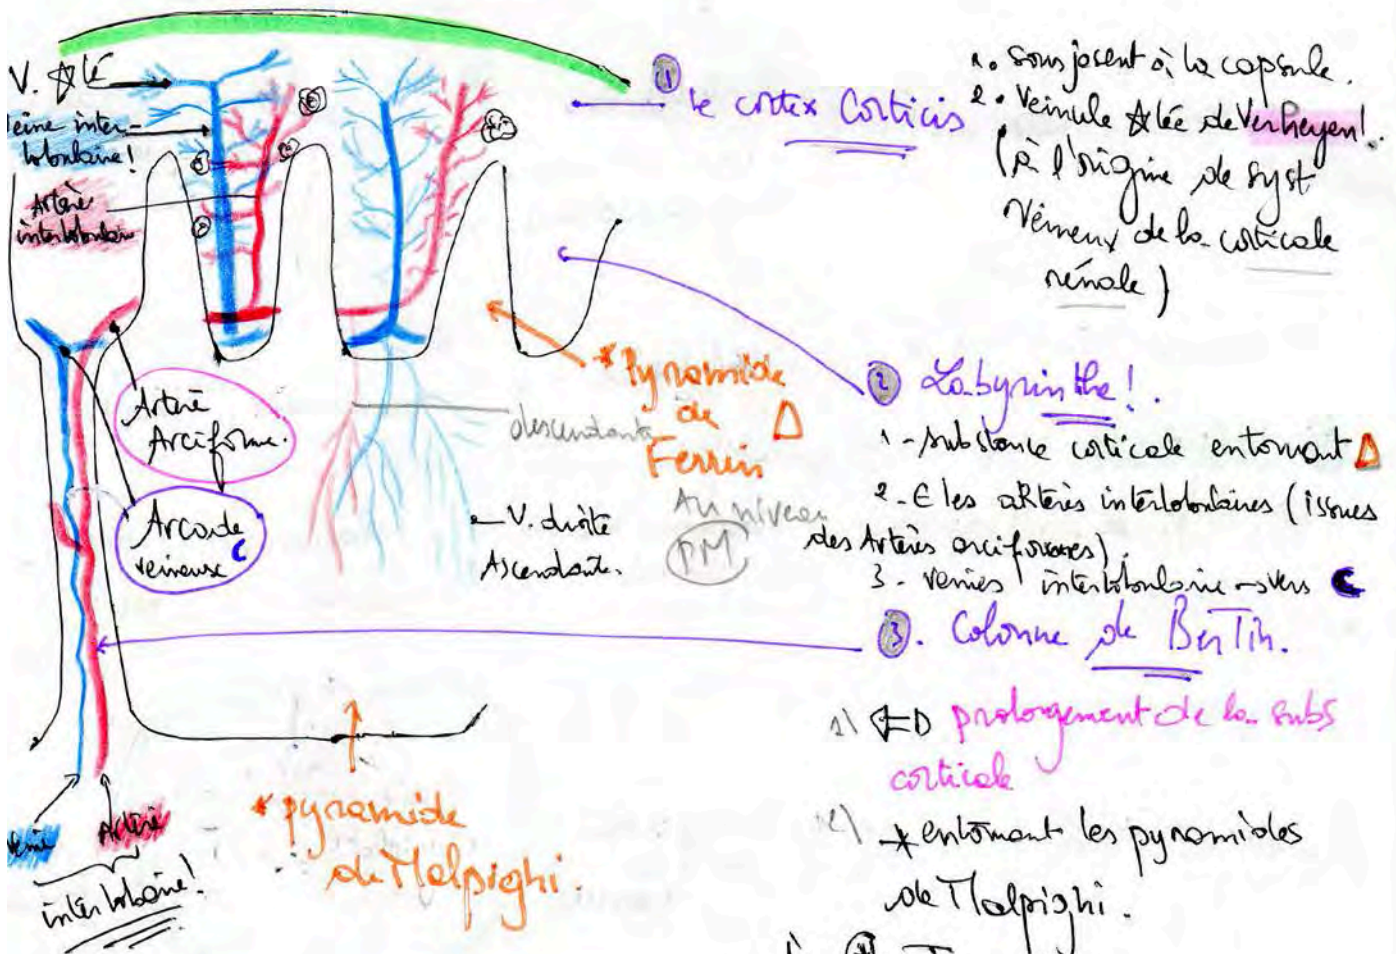 V. ☆lé
veine inter-
lobulaire!
Artère
interlobulaire
Artère
Arciforme.
Arcade
veineuse C
veine Artère
interlobaire!
descendante
V. droite
Ascendante.
Au niveau
PM
* Pyramide
de Δ
Ferrein
* pyramide
de Malpighi.
① le cortex Corticis
1. sous jacent à la capsule.
2. Veinule ☆lée de Verheyen!.
(à l'origine de syst
veineux de la corticale
rénale)
② Labyrinthe!.
1 - substance corticale entourant Δ
2 - ∈ les artères interlobulaires (issues
des Artères arciformes).
3 - veines interlobulaire → vers C
③. Colonne de Bertin.
1) ⇔ prolongement de la subs
corticale
2) * entourant les pyramides
de Malpighi.